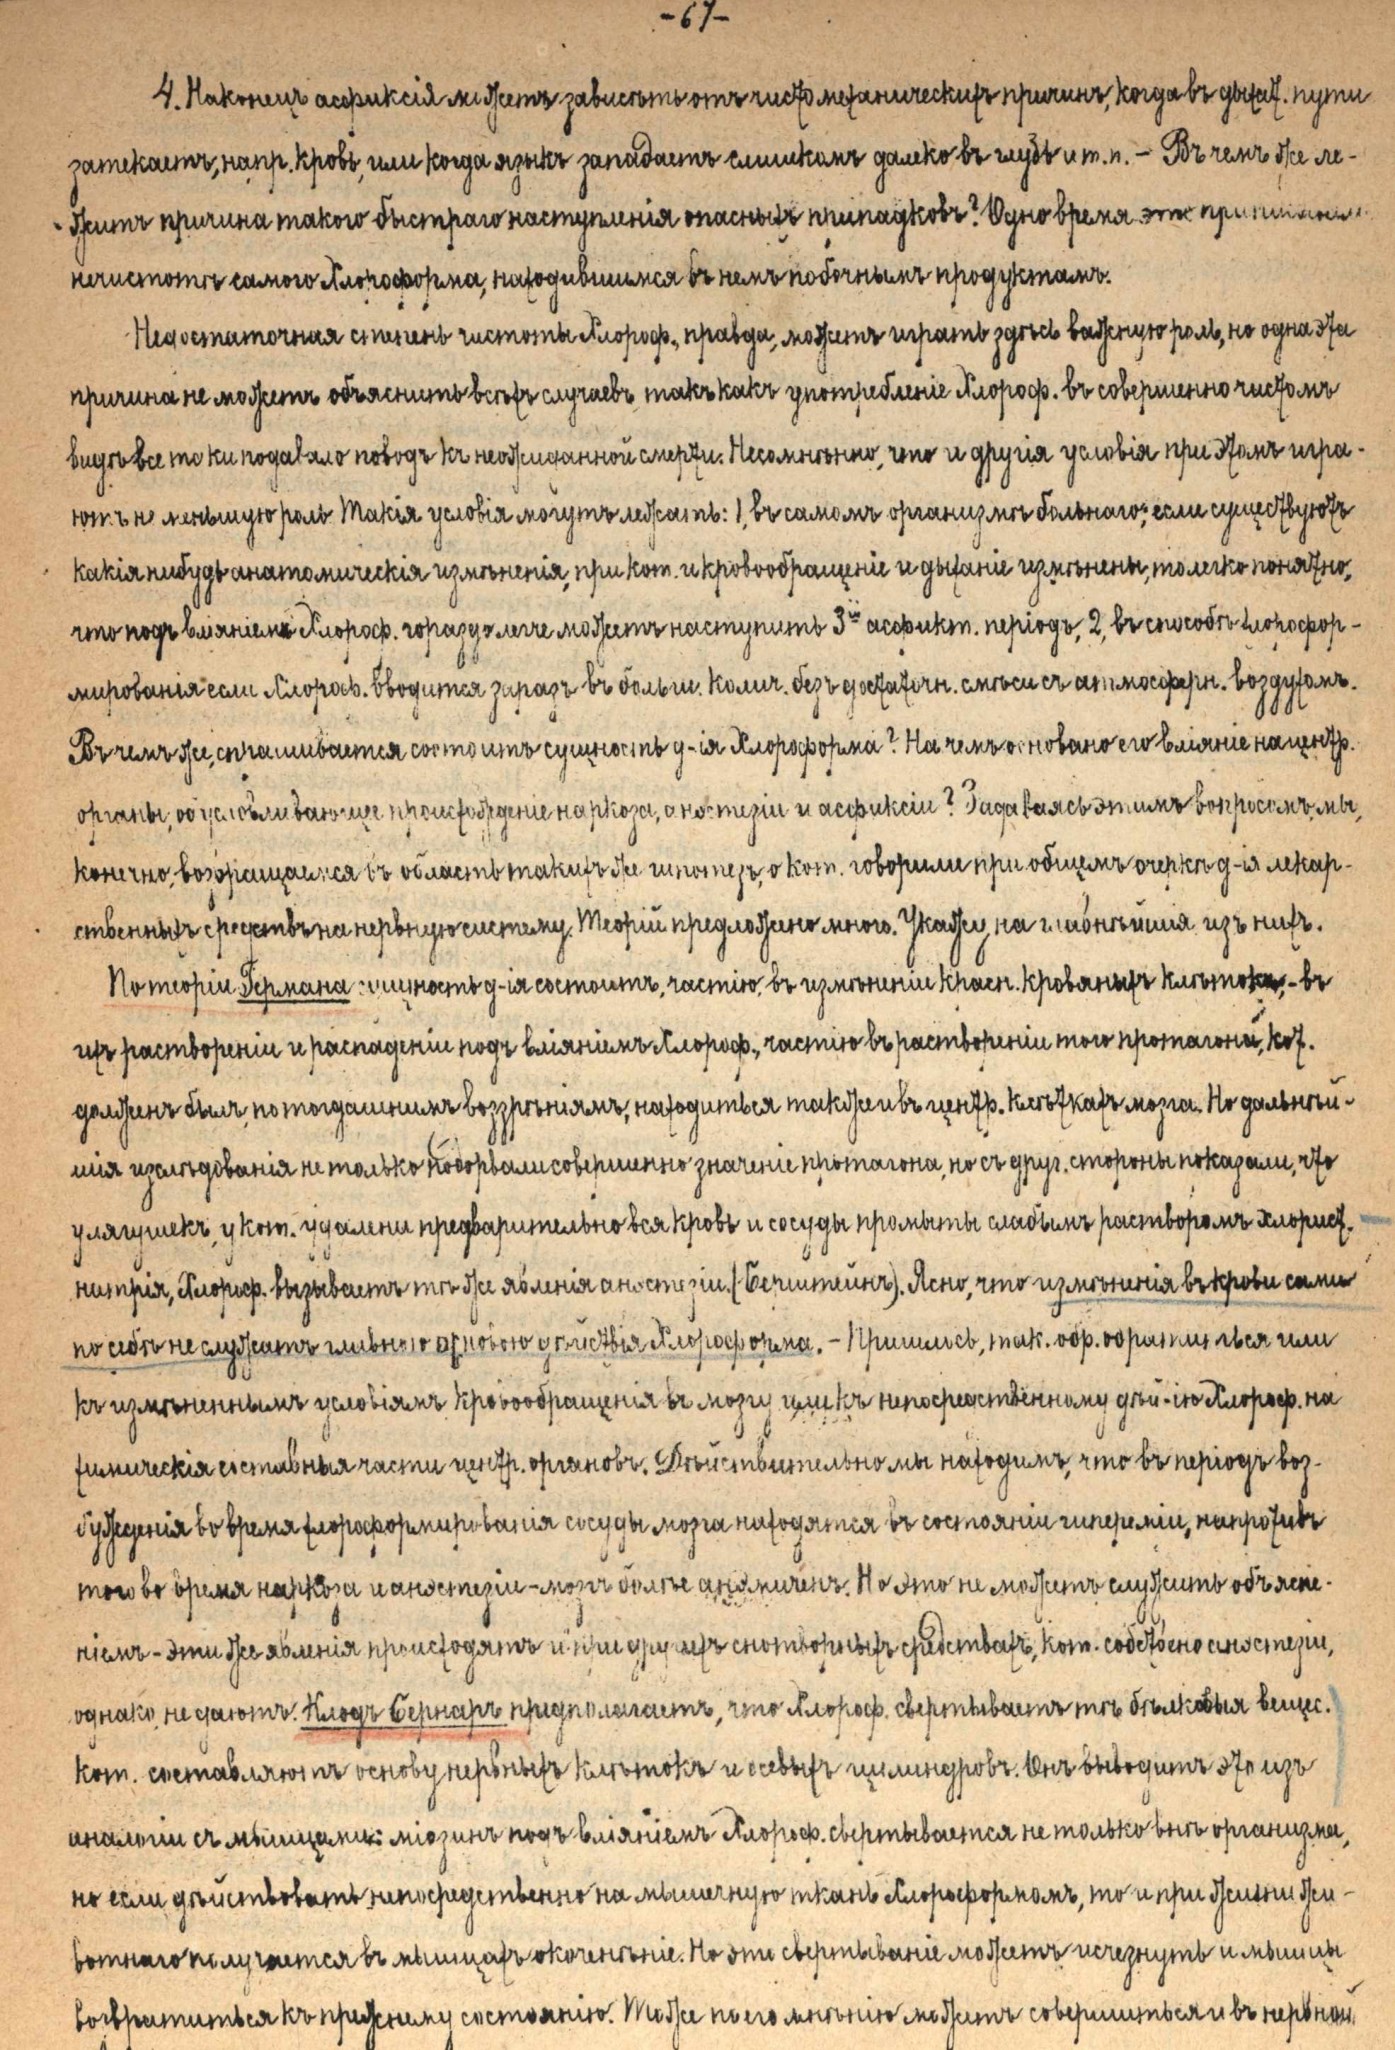 -67-
4. Наконецъ асфиксія можетъ зависѣть отъ чисто механическихъ причинъ, когда въ дыхат. пути
затекаетъ, напр. кровь, или когда языкъ западаетъ слишкомъ далеко въ глубь и т.п. – Въ чемъ же ле-
житъ причина такого быстраго наступленія опасныхъ припадковъ? Одно время это приписывали
нечистотѣ самого Хлороформа, находившимся въ немъ побочнымъ продуктамъ.
Недостаточная степень чистоты Хлороф., правда, можетъ играть здѣсь важную роль, но одна эта
причина не можетъ объяснить всѣхъ случаевъ такъ какъ употребленіе Хлороф. въ совершенно чистомъ
видѣ все таки подавало поводъ къ неожиданной смерти. Несомнѣнно, что и другія условія при этомъ игра-
ютъ не меньшую роль. Такія условія могутъ лежать: 1, въ самомъ организмѣ больнаго; если существуютъ
какія нибудь анатомическія измѣненія, при кот. и кровообращеніе и дыханіе измѣнены, то легко понятно,
что подъ вліяніемъ Хлороф. гораздо легче можетъ наступить 3й асфикт. періодъ, 2, въ способѣ хлорофор-
мированія если Хлороф. вводится заразъ въ больш. колич. безъ достаточн. смѣси съ атмосферн. воздухомъ.
Въ чемъ же, спрашивается состоитъ сущность д-ія Хлороформа? На чемъ основано его вліяніе на центр.
органы, обусловливающее происхожденіе наркоза, анэстезіи и асфиксіи? Задаваясь этимъ вопросомъ, мы,
конечно, возвращаемся въ область такихъ же гипотезъ, о кот. говорили при общемъ очеркѣ д-ія лекар-
ственныхъ средствъ на нервную систему. Теорій предложено много. Укажу, на главнѣйшія изъ нихъ.
По теоріи Германа сущность д-ія состоитъ, частію, въ измѣненіи красн. кровяныхъ клѣтокъ, – въ
ихъ раствореніи и распаденіи подъ вліяніемъ Хлороф., частію въ раствореніи того протагона, кот.
долженъ былъ, по тогдашнимъ воззрѣніямъ, находиться также и въ центр. клѣткахъ мозга. Но дальнѣй-
шія изслѣдованія не только подорвали совершенно значеніе протагона, но съ друг. стороны показали, что
у лягушекъ, у кот. удалены предварительно вся кровь и сосуды промыты слабымъ растворомъ хлорист.
натрія, Хлороф. вызываетъ тѣ же явленія анэстезіи. (Бернштейнъ). Ясно, что измѣненія въ крови сами
по себѣ не служатъ главною основою дѣйствія Хлороформа. – Пришлось, так. обр. обратиться или
къ измѣненнымъ условіямъ кровообращенія въ мозгу или къ непосредственному дѣй-ію Хлороф. на
химическія составныя части центр. органовъ. Дѣйствительно мы находимъ, что въ періодъ воз-
бужденія во время хлороформированія сосуды мозга находятся въ состояніи гипереміи, напротивъ
того во время наркоза и анэстезіи – мозгъ болѣе анэмиченъ. Но это не можетъ служить объясне-
ніемъ – эти же явленія происходятъ и при другихъ снотворныхъ средствахъ, кот. собственно анэстезіи,
однако, не даютъ. Клодъ Бернаръ предполагаетъ, что Хлороф. свертываетъ тѣ бѣлковыя вещес.
кот. составляютъ основу нервныхъ клѣтокъ и осевыхъ цилиндровъ. Онъ выводитъ это изъ
аналогіи съ мышцами: міозинъ подъ вліяніемъ Хлороф. свертывается не только внѣ организма,
но если дѣйствовать непосредственно на мышечную ткань Хлороформомъ, то и при жизни жи-
вотнаго получается въ мышцахъ окоченѣніе. Но это свертываніе можетъ исчезнуть и мышцы
возвратиться къ прежнему состоянію. Тоже по его мнѣнію можетъ совершиться и въ нервной